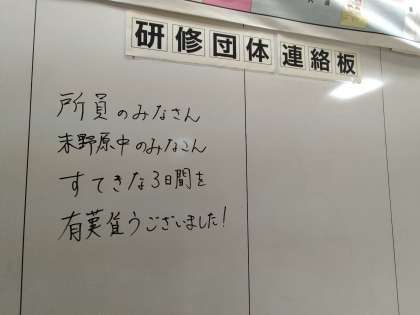 研修団体連絡板
所員のみなさん
末野原中のみなさん
すてきな3日間を
有難うございました!